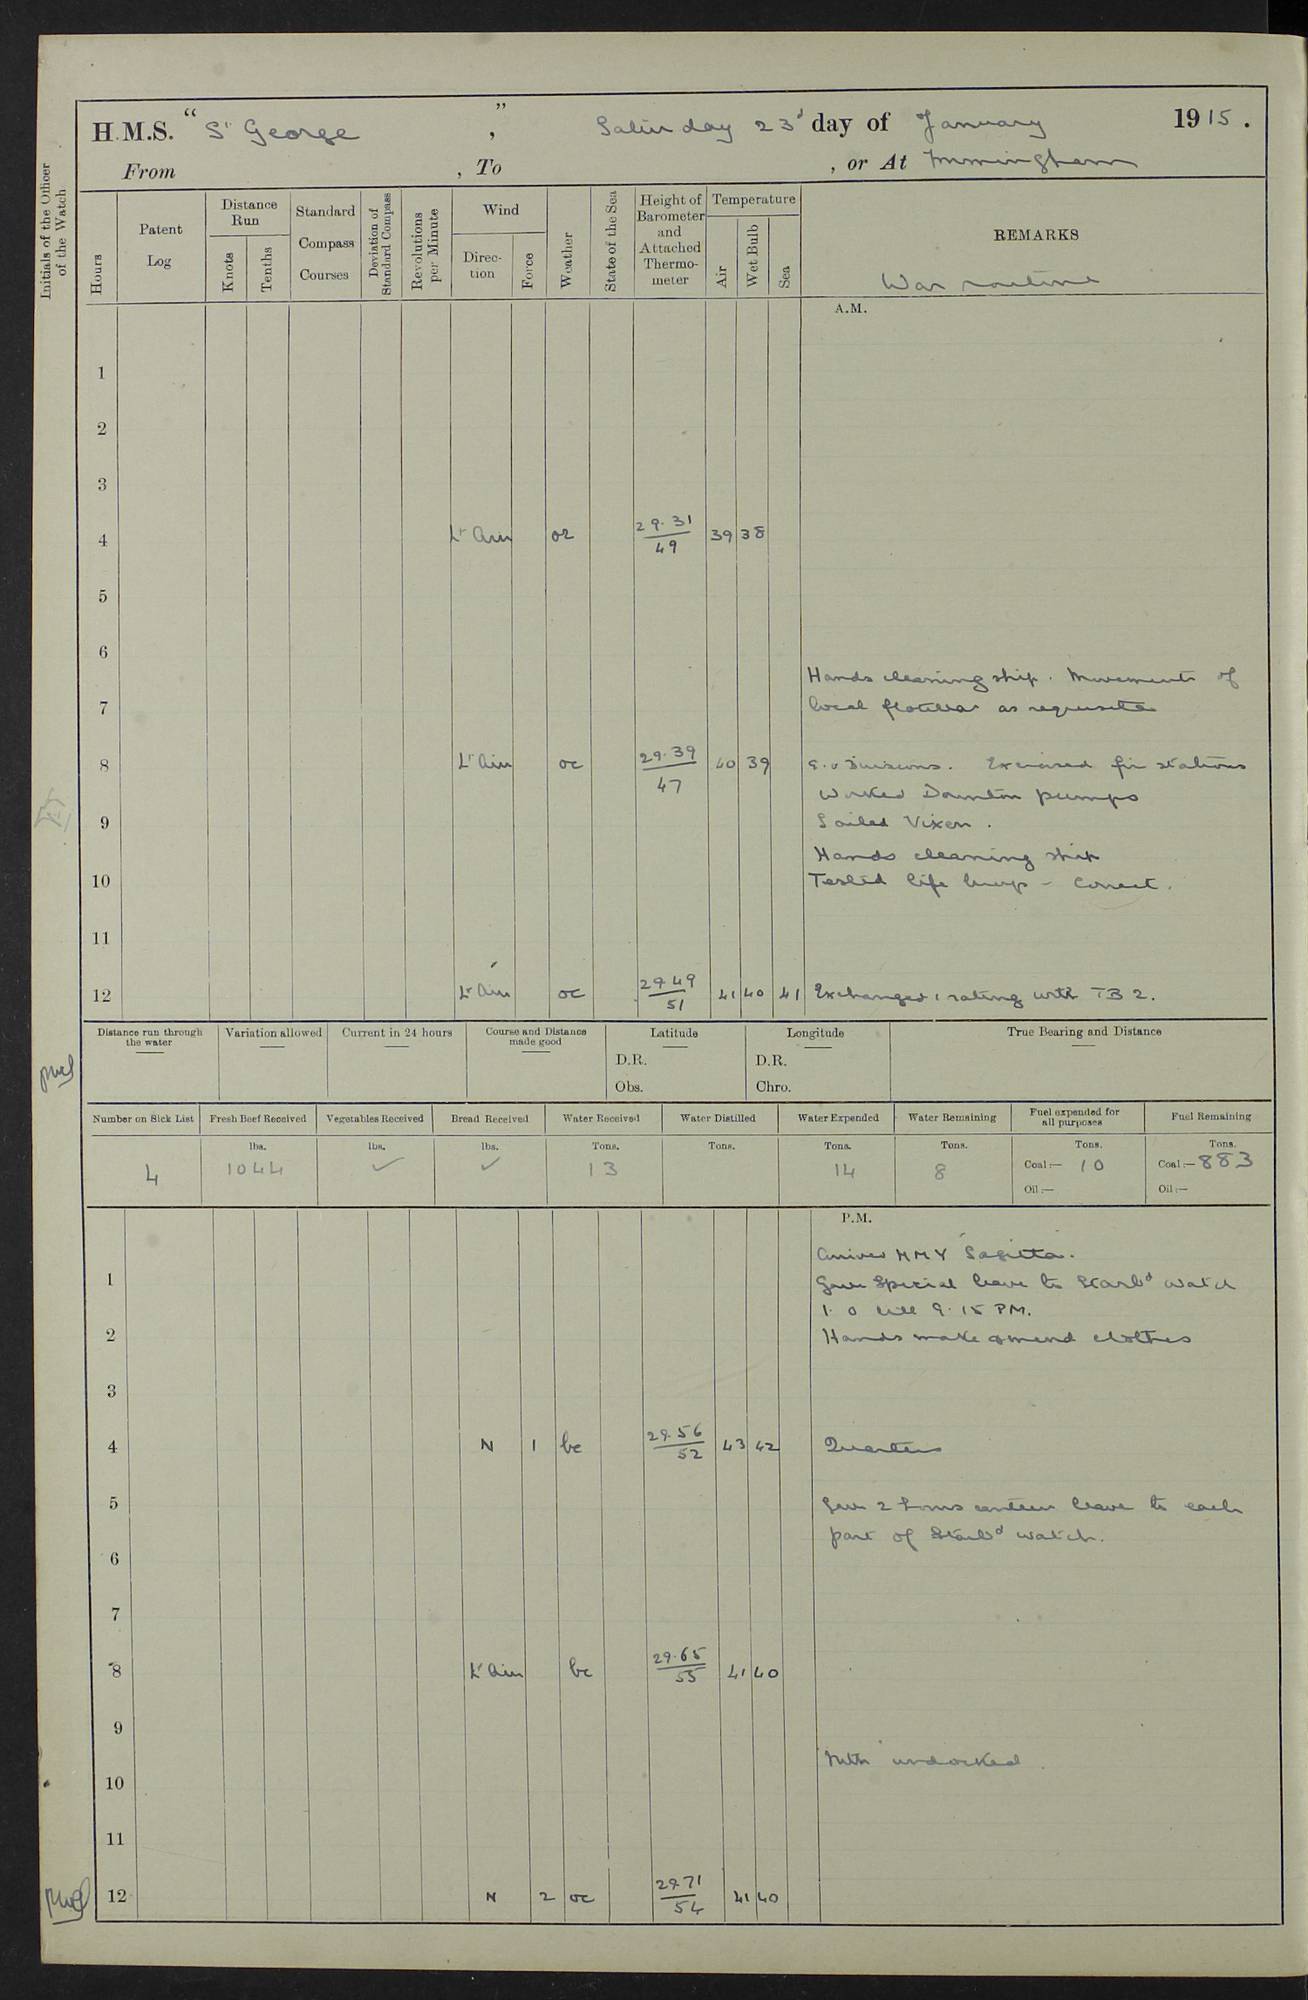 H.M.S. "St George", Saturday 23d day of January 1915.
From , To , or At Immingham
Initials of the Officer of the Watch
Hours
Patent Log
Distance Run
Knots
Tenths
Standard Compass Courses
Deviation of Standard Compass
Revolutions per Minute
Wind
Direction
Force
Weather
State of the Sea
Height of Barometer and Attached Thermometer
Temperature
Air
Wet Bulb
Sea
REMARKS
War routine
A.M.
1
2
3
4 Lt Airs or 29.31/49 39 38
5
6
Hands cleaning ship. Movements of
7 local flotillas as requisite
8 Lt Airs oc 29.39/47 40 39 Divisions. Exercised fire stations
Worked Downton pumps
9 Sailed Vixen.
Hands cleaning ship
10 Tested life buoys - Correct.
11
12 Lt Airs oc 29.49/51 41 40 41 Exchanged 1 rating with TB 2.
Distance run through the water
Variation allowed
Current in 24 hours
Course and Distance made good
Latitude
D.R.
Obs.
Longitude
D.R.
Chro.
True Bearing and Distance
Number on Sick List
Fresh Beef Received
Vegetables Received
Bread Received
Water Received
Water Distilled
Water Expended
Water Remaining
Fuel expended for all purposes
Fuel Remaining
lbs. lbs. lbs. Tons. Tons. Tons. Tons. Tons. Tons.
4 1044 ✓ ✓ 13 14 8 Coal:— 10 Coal:— 883
Oil:— Oil:—
P.M.
Arrived HMY Sagitta.
1 Gave Special leave to Starbd watch
1.0 till 9.15 PM.
2 Hands make & mend clothes
3
4 N 1 bc 29.56/52 43 42 Quarters
5 Gave 2 hours canteen leave to each
part of Starbd watch.
6
7
8 Lt Airs bc 29.65/55 41 40
9
undocked
10
11
12 N 2 oc 29.71/54 41 40